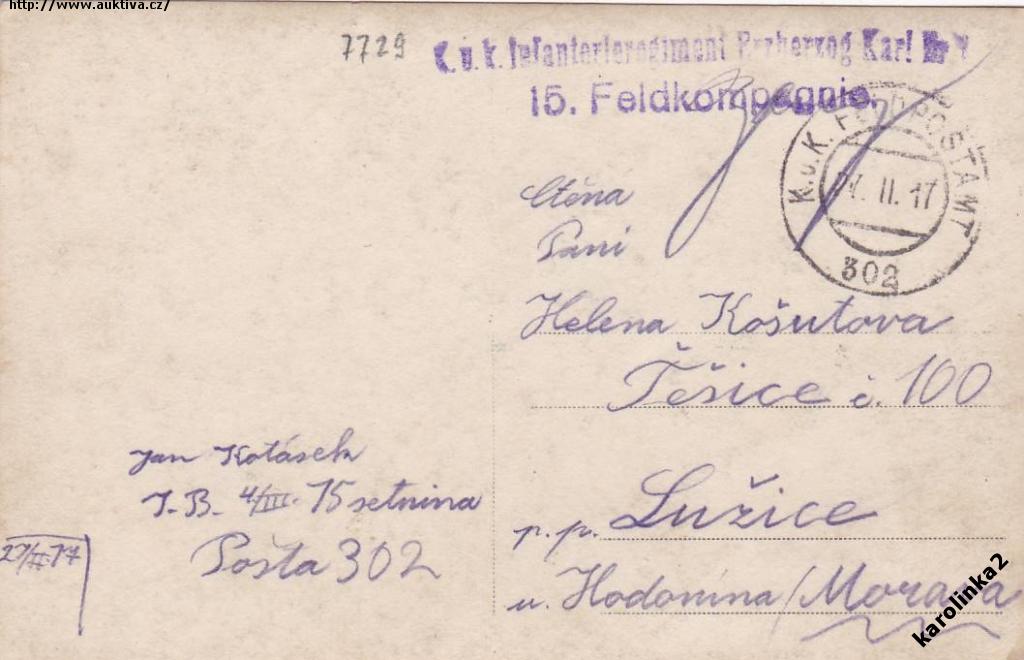 http://www.auktiva.cz/
7729
K. u. k. Infanterieregiment Erzherzog Karl Nr
15. Feldkompagnie.
K. u. K. FELDPOSTAMT
II. 17
302
Ctěna
Pani
Helena Košutova
Těšice č. 100
p. p. Lužice
u. Hodonina / Morava
Jan Kotásek
I. B. 4/III. 15 setnina
Pošta 302
27/II 17
karolinka2